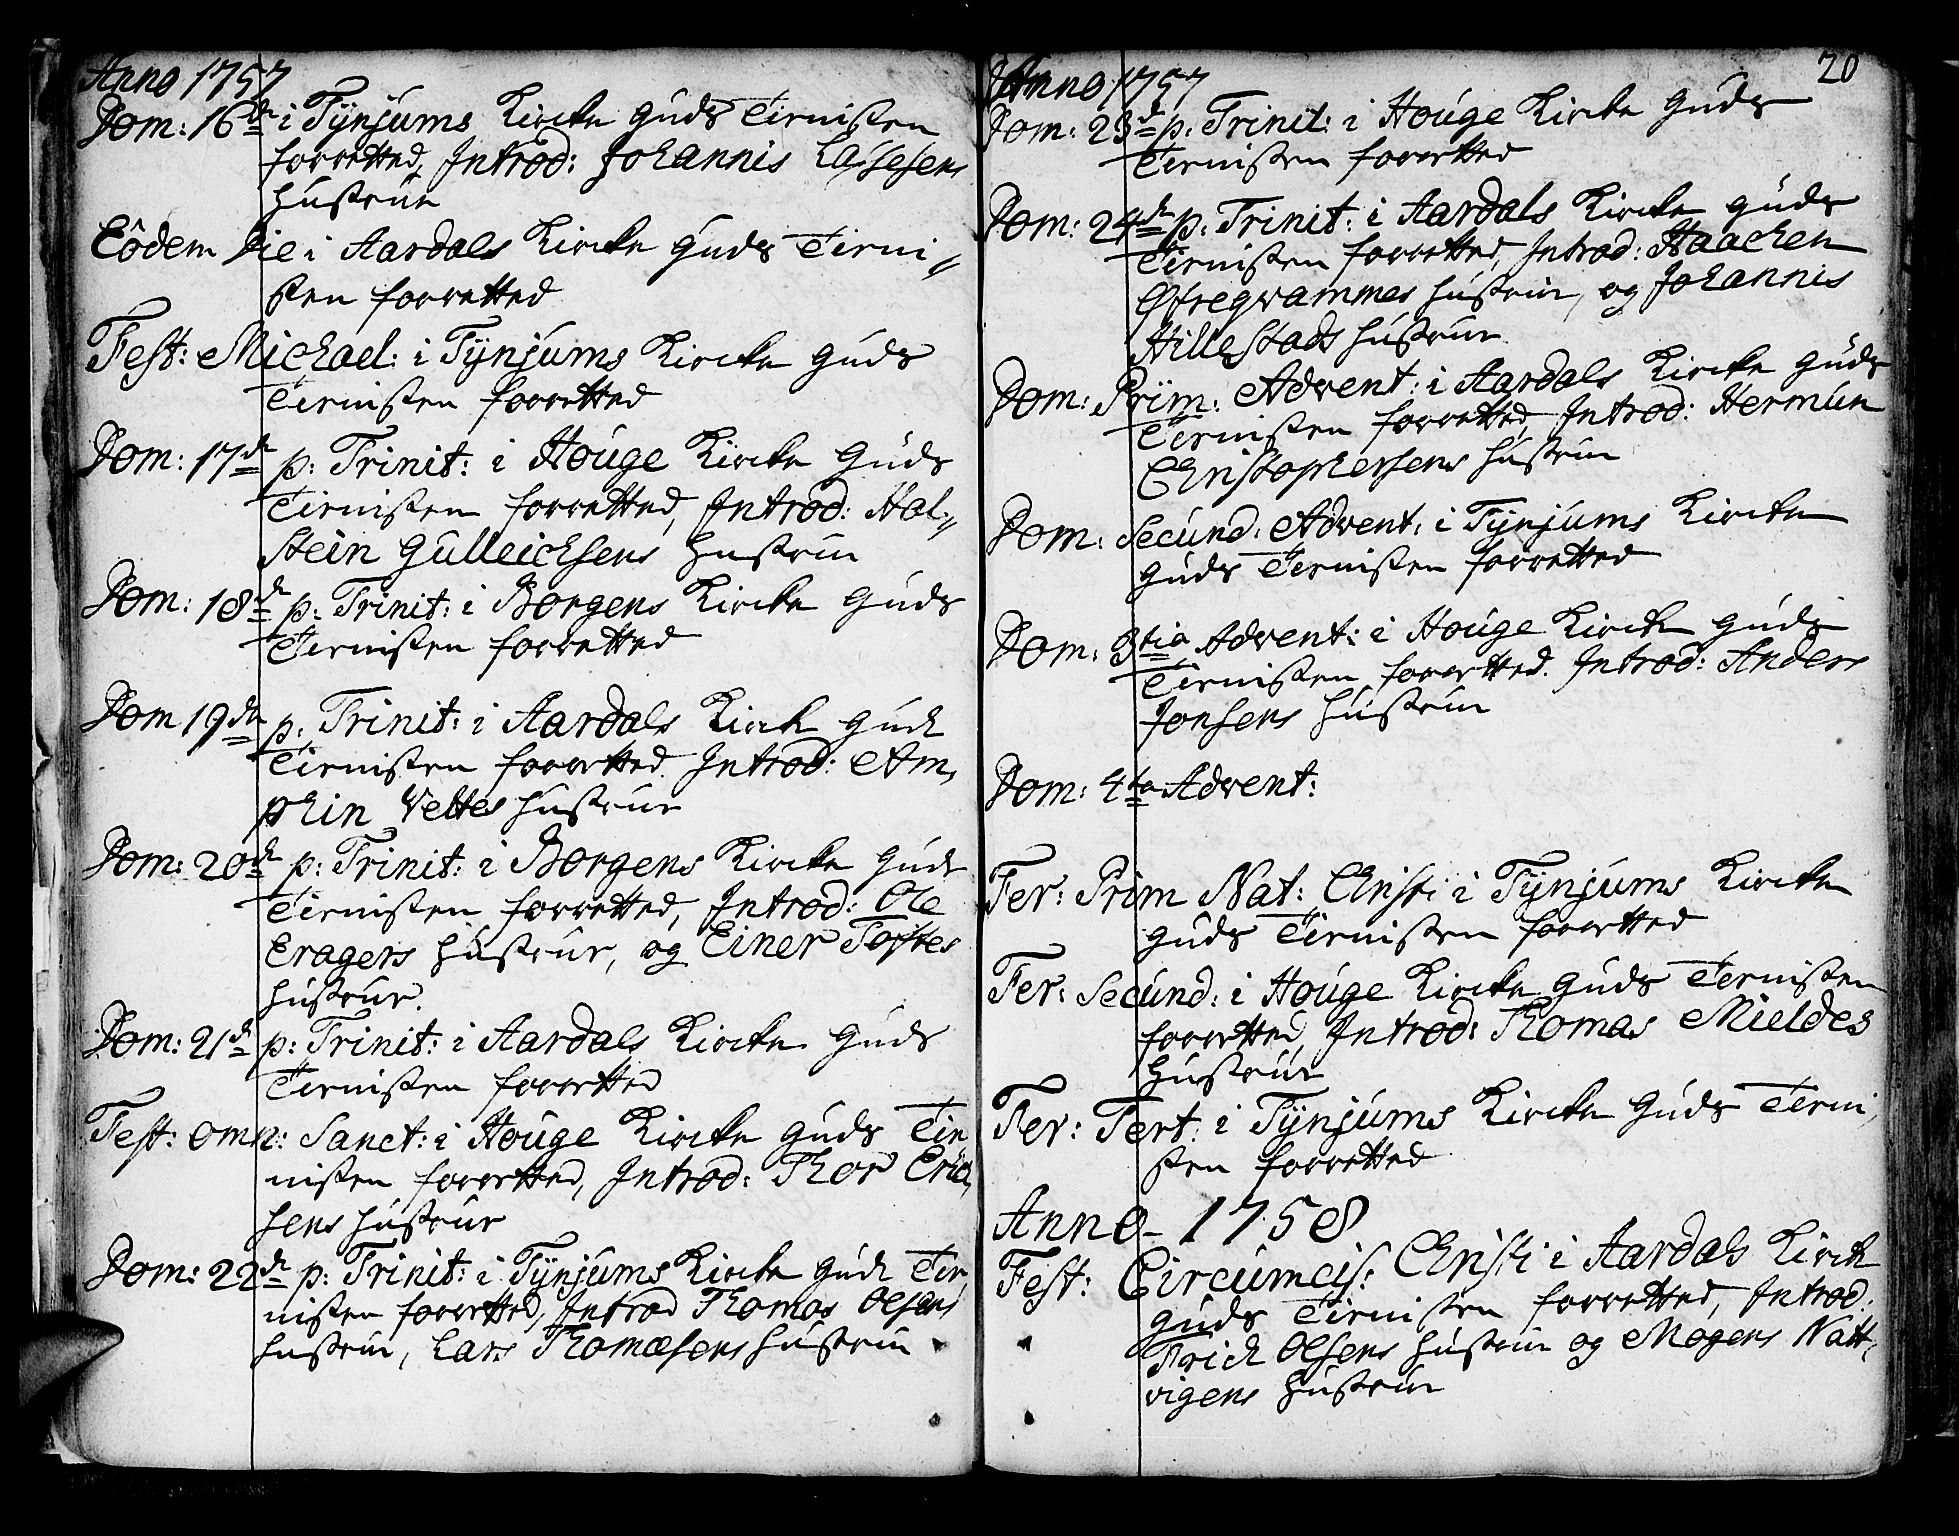 Anno 1757
Dom: 16de i Tÿnjums Kircke Guds Tienisten
forretted, Introd: Johannis Lassesens
Hustrue
Eôdem Die i Aardals Kircke Guds Tieni-
sten forretted
Fest: Michael: i Tÿnjums Kircke Guds
Tienisten forretted
Dom: 17de p: Trinit: i Houge Kircke Guds
Tienisten forretted, Introd: Hal-
stein Gulleichsens Hustrue
Dom: 18de p: Trinit: i Borgens Kircke Guds
Tienisten forretted
Dom 19de p: Trinit: i Aardals Kirck Guds
Tienisten forretted. Introd: Am-
phin Veltes Hustrue
Dom: 20de p: Trinit: i Borgens Kircke Guds
Tienisten forretted, Introd: Ole
Eragers Hustrue, og Einer Toftes
Hustrue.
Dom: 21de p: Trinit: i Aardals Kircke Guds
Tienisten forretted
Fest: omn: Sanct: i Houge Kircke Guds Tie
nisten forretted, Introd: Thor Erich
sens Hustrue
Dom: 22de p: Trinit: i Tÿnjums Kircke Guds Tie
nisten forretted, Introd Thomas Olsens
Hustrue, Lars Thomæsens Hustrue
20
Anno 1757
Dom: 23de p: Trinit: i Houge Kircke Guds
Tienisten forretted
Dom: 24de p: Trinit: i Aardals Kircke Guds
Tienisten forretted, Introd: Haachen
Øfregvammes Hustrue, og Johannis
Hillestads Hustrue
Dom: Prim: Advent: i Aardals Kircke Guds
Tienisten forretted, Introd: Hermun
Christophersens Hustrue
Dom: Secund: Advent: i Tÿnjums Kircke
Guds Tienisten forretted
Dom: 3tia Advent: i Houge Kirck Guds
Tienisten forretted. Introd: Anders
Jonsens Hustrue
Dom: 4ta Advent:
Fer: Prim Nat: Christi i Tÿnjums Kircke
Guds Tienisten forretted
Fer: Secund: i Houge Kircke Guds Tienisten
forretted, Introd: Thomas Mieldes
Hustrue
Fer: Tert: i Tÿnjums Kircke Guds Tieni-
sten forretted
Anno 1758
Fest: Circumcis: Christi i Aardals Kirck
Guds Tienisten forretted, Introd:
Frich Olsens Hustrue og Mogens Natt-
vigens Hustrue